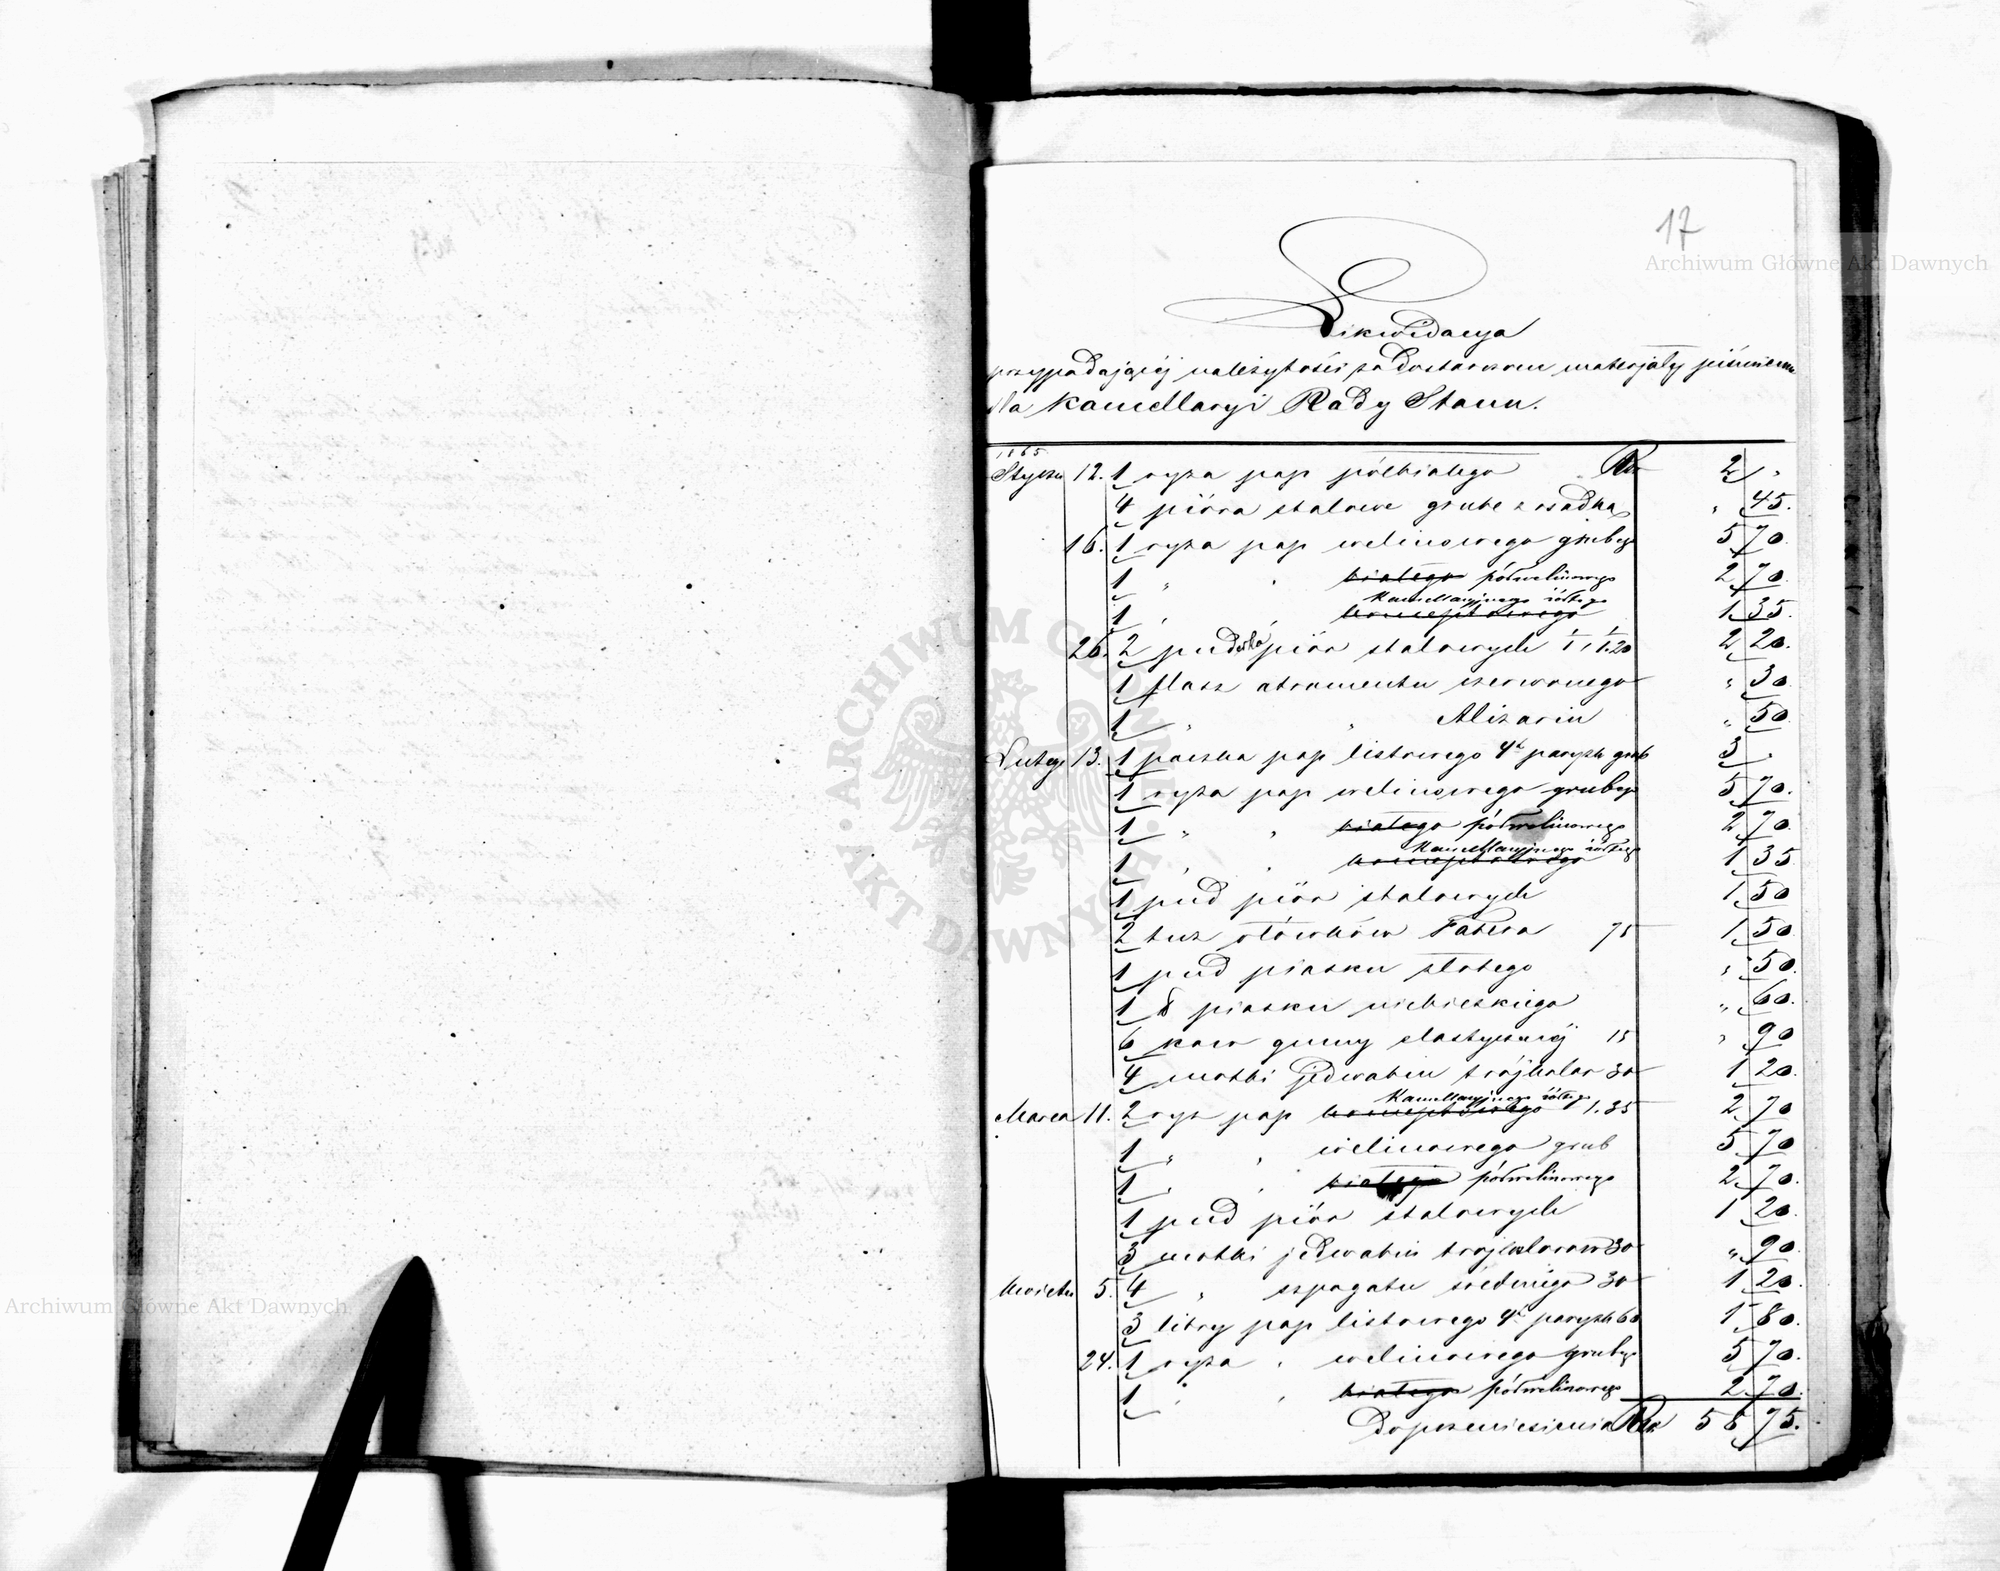 17
Archiwum Główne Akt Dawnych
Likwidacya
przypadającéj należytości za dostarczone materjały piśmienne
dla Kancellaryi Rady Stanu.
1865
Styczn 12. 1 ryza pap półbiałego Rs 2 "
4 pióra stalowe grube z osadką " 45.
16. 1 ryza pap welinowego grubego 5 70
1 " " białego półwelinowego 2 70
Kancellaryjnego żółtego
1 " " konceptowego 1 35
26. 2 pudełka piór stalowych 1/1, 1/1.20 2 20.
1 flasz atramentu czerwonego " 30
1 " " Alizarin " 50
Lutego 13. 1 paczka pap listowego 4t parysk grub 3 "
1 ryza pap welinowego grubego 5 70.
1 " " białego półwelinowego 2 70
Kancellaryjnego żółtego
1 " " konceptowego 1 35
1 pud piór stalowych 1 50
2 tuz ołówków Fabera 75 1 50
1 pud piasku złotego " 50.
1 ℔ piasku niebieskiego " 60.
6 kaw gumy elastycznéj 15 " 90
4 motki jedwabiu trójkolor 30 1 20.
Kancellaryjnego żółtego
Marca 11. 2 ryz pap konceptowego 1.35 2 70
1 " " welinowego grub 5 70
1 " " białego półwelinowego 2 70.
1 pud piór stalowych 1 20.
3 motki jedwabiu trójkolorow 30 " 90.
Kwietn 5. 4 " szpagatu średniego 30 1 20.
3 libry pap listowego 4t parysk 60 1 80.
24. 1 ryza " welinowego grubego 5 70.
1 " " białego półwelinowego 2 70.
Do przeniesienia Rs 56 75.
Archiwum Główne Akt Dawnych
ARCHIWUM GŁÓWNE AKT DAWNYCH